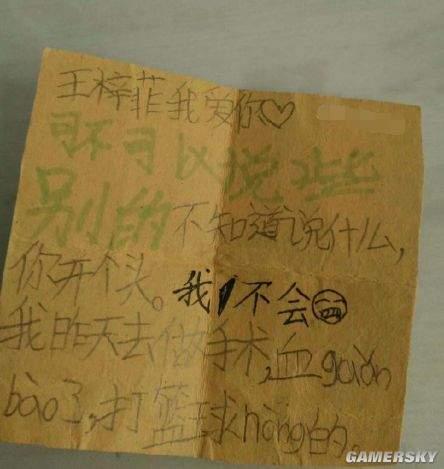 王梓菲我爱你♡
可不可以说些
别的 不知道说什么,
你开个头。我不会
我昨天去做手术,血guǎn
bào了,打篮球nòng的。
GAMERSKY